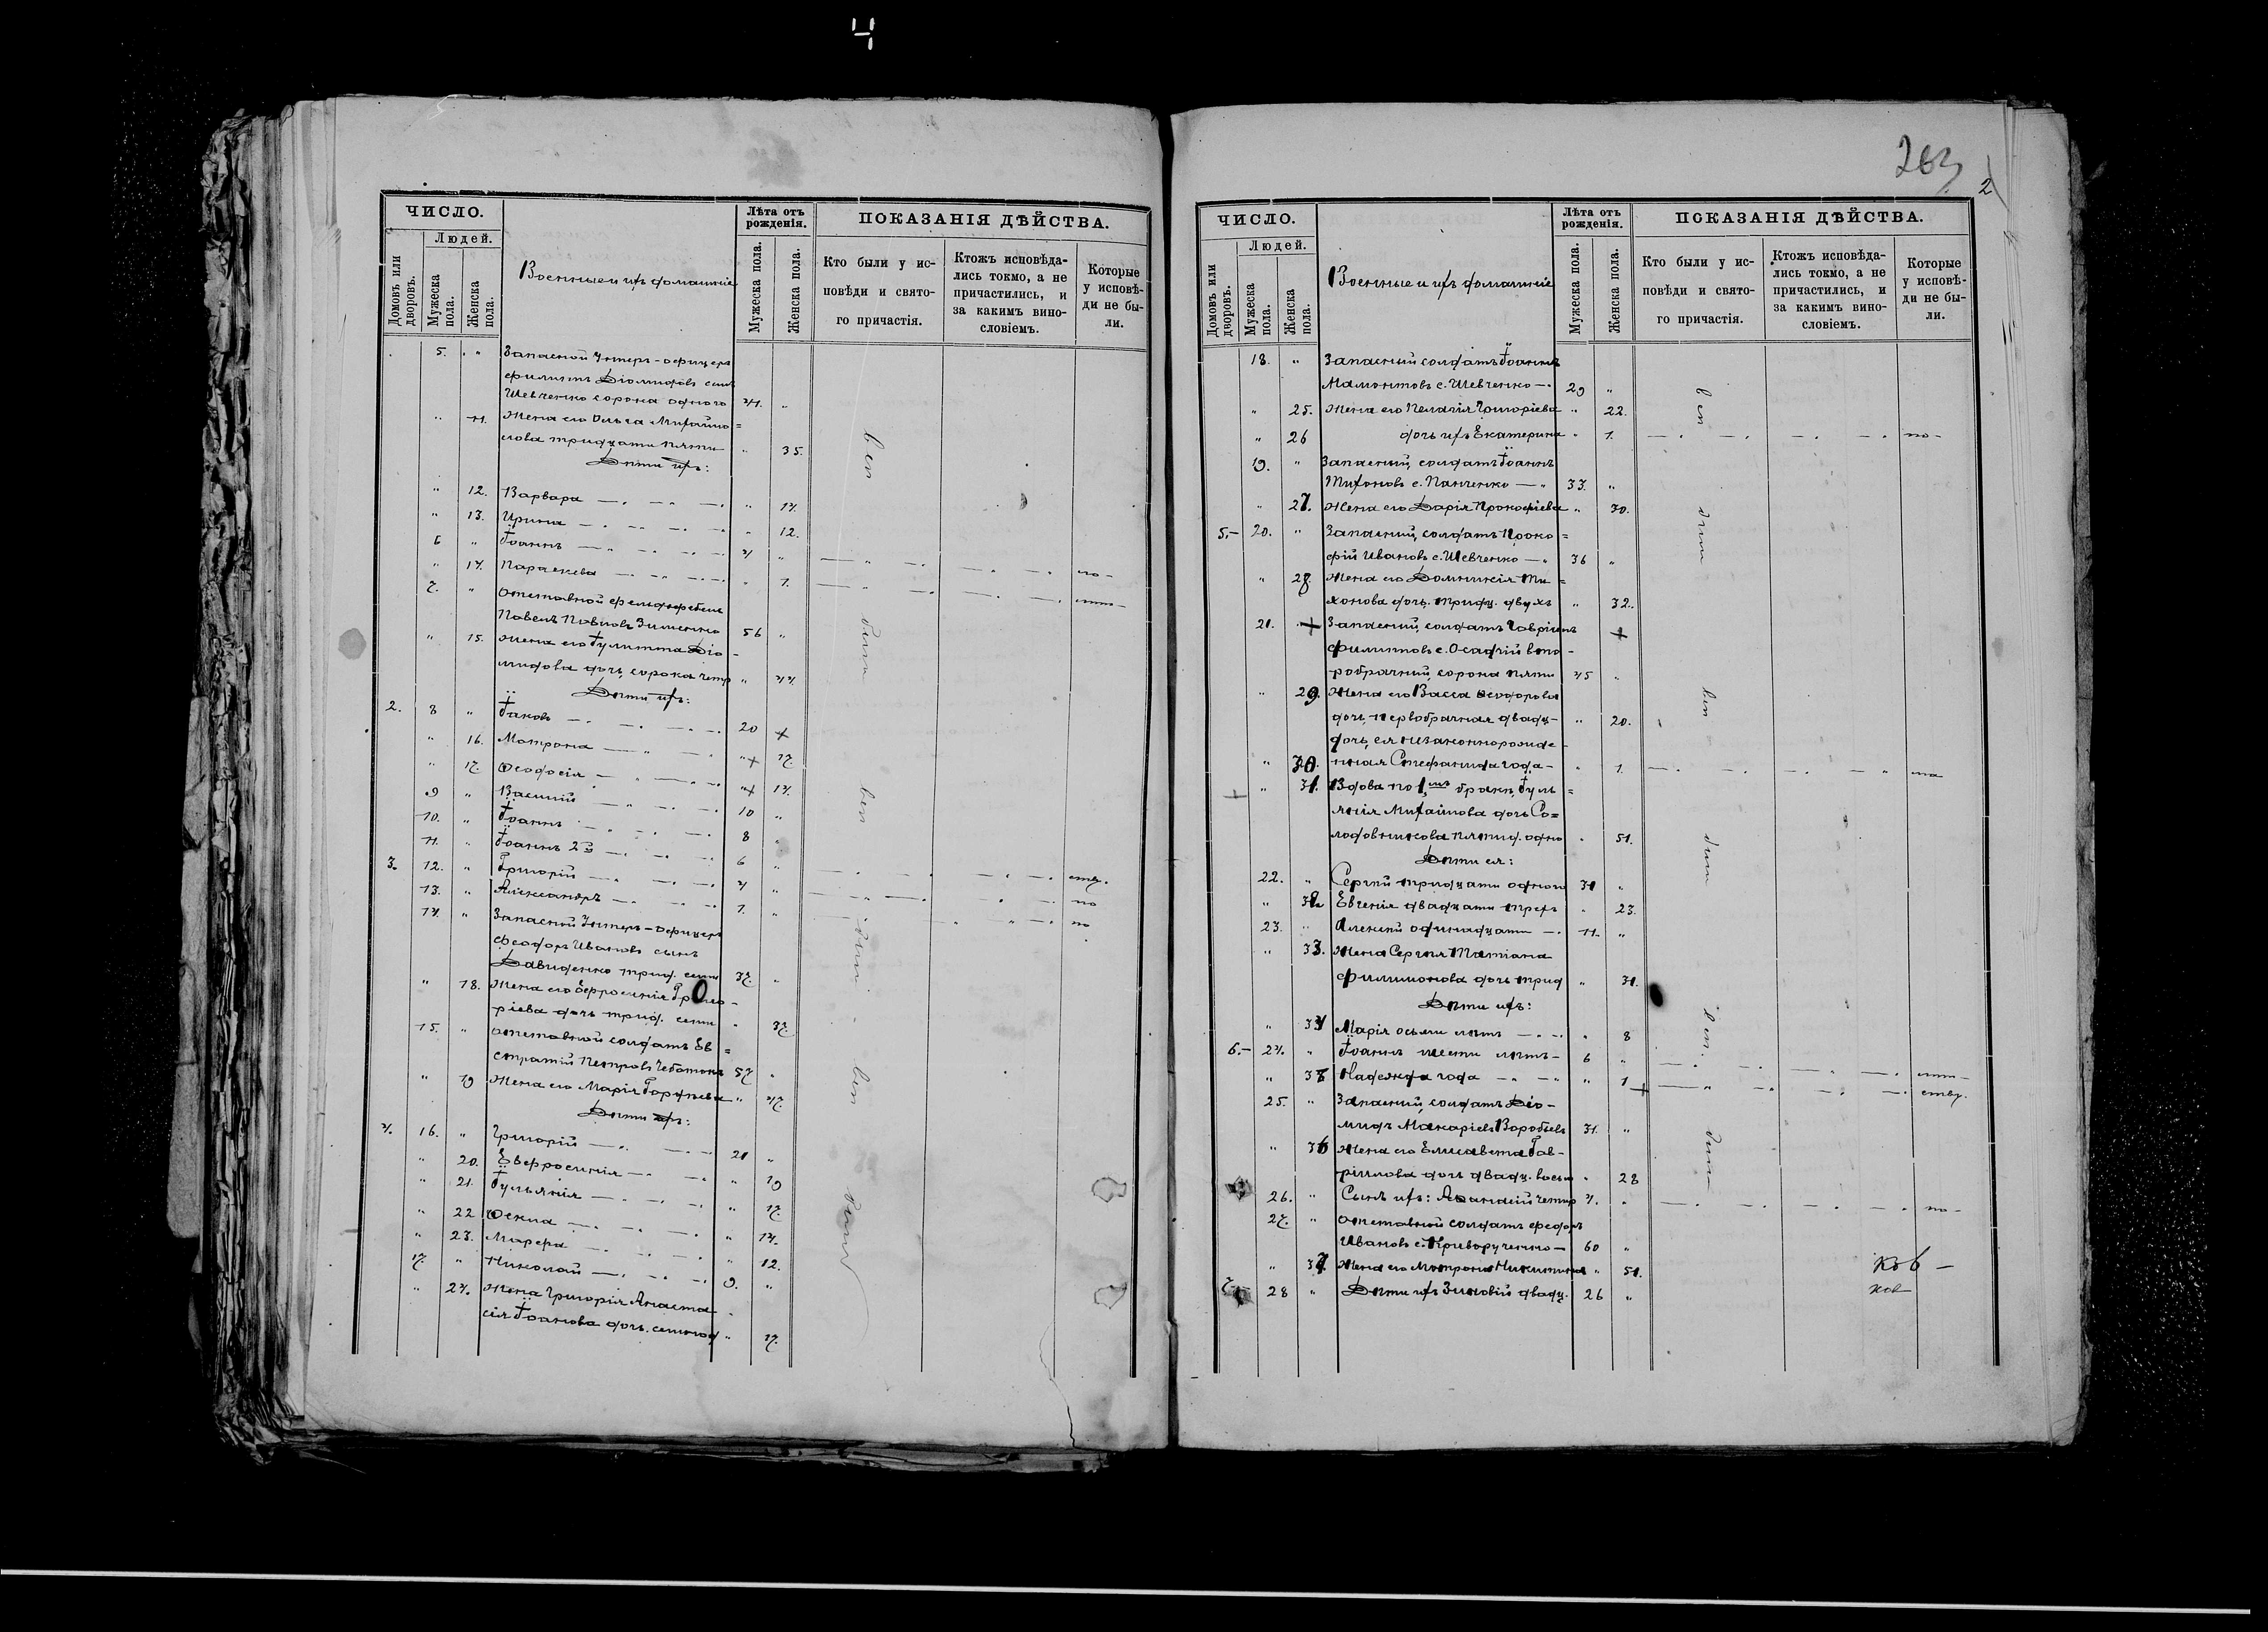 4
ЧИСЛО.
Людей.
Домовъ или дворовъ.
Мужеска пола.
Женска пола.
Военные и ихъ домашніе
Лѣта отъ рожденія.
Мужеска пола.
Женска пола.
ПОКАЗАНІЯ ДѢЙСТВА.
Кто были у исповѣди и святого причастія.
Ктожъ исповѣдались токмо, а не причастились, и за какимъ винословіемъ.
Которые у исповѣди не были.
5. " Запасной Унтеръ-офицеръ
Филиппъ Діомидовъ сынъ
Шевченко сорока одного 41. "
" 11. Жена его Ольга Михайло=
лова тридцати пяти " 35.
Дѣти ихъ:
" 12. Варвара " 14.
" 13. Ирина " 12.
6 " Іоаннъ 4 "
" 14. Параскева " 1.
7. " Отставной фельдфебель
Павелъ Павловъ Зименко 56 "
" 15. Жена его Іулитта Діо-
мидова дочь, сорока четр " 44.
Дѣти ихъ:
2. 8 " Іаковъ 20 +
" 16. Мотрона "+ 17.
" 17. Ѳеодосія "+ 14.
9 " Василій 10 "
10. " Іоаннъ 8 "
11. " Іоаннъ 2й 6 "
3. 12. " Григорій 4 "
13. " Александръ 1. "
14. " Запасной Унтеръ-офицеръ
Феодоръ Ивановъ сынъ
Давиденко трид. семи 37. "
" 18. Жена его Евфросинія Григо-
ріева дочь трид. семи " 37.
15. " Отставной солдатъ Ев=
стратій Петровъ Чеботокъ 57. "
" 19 Жена его Марія Гордѣева " 47.
Дѣти ихъ:
4. 16. " Григорій 21 "
" 20. Евфросинія " 19
" 21. Іуліанія " 17.
" 22 Ѳекла " 14.
" 23. Марфа " 12.
17. " Николай 9. "
" 24. Жена Григорія Анаста-
сія Іоанова дочь, семнад " 17.
263
2
ЧИСЛО.
Людей.
Домовъ или дворовъ.
Мужеска пола.
Женска пола.
Военные и ихъ домашніе
Лѣта отъ рожденія.
Мужеска пола.
Женска пола.
ПОКАЗАНІЯ ДѢЙСТВА.
Кто были у исповѣди и святого причастія.
Ктожъ исповѣдались токмо, а не причастились, и за какимъ винословіемъ.
Которые у исповѣди не были.
18. " Запасный солдатъ Іоаннъ
Мамонтовъ с. Шевченко 29 "
" 25. Жена его Пелагія Григоріева " 22.
" 26 дочь ихъ Екатерина " 1.
19. " Запасный солдатъ Іоаннъ
Тихоновъ с. Панченко 33. "
" 27. Жена его Дарія Прокофіева " 30.
5. 20. " Запасный, солдатъ Проко=
фій Ивановъ с. Шевченко 36 "
" 28. Жена его Домникія Ти=
хонова дочь, тридц. двухъ " 32.
21. + Запасный, солдатъ Гавріилъ +
Филиповъ с. Осадчій вто-
робрачный, сорока пяти 45 "
" 29. Жена его Васса Ѳеодорова
дочь, первобрачная двадц- " 20.
дочь, ея незаконнорожде-
" 30. нная Стефанида года " 1.
+ " 31. Вдова по 1мъ бракѣ, Іулі=
янія Михайлова дочь Со=
лодовникова пятид. одно " 51.
Дѣти ея:
22. " Сергѣй тридцати одного 31 "
" 32. Евгенія двадцати трехъ " 23.
23. " Алексѣй одинадцати 11. "
" 33. Жена Сергѣя Татіана
Филимонова дочь трид " 31.
Дѣти ихъ:
" 34 Марія осьми лѣтъ " 8
6. 24. " Іоаннъ шести лѣтъ 6 "
" 35 Надежда года " 1 +
25. " Запасный, солдатъ Діо-
мидъ Макаріевъ Воробіевъ 31. "
" 36 Жена его Елисавета Гав-
ріилова дочь двадц. восьм " 28
26. " Сынъ ихъ: Афанасій четир 4. "
27. " Отставной солдатъ Феодоръ
Ивановъ с. Криворученко 60 "
" 37 Жена его Мотрона Никитина " 51.
7. 28 " Дѣти ихъ Зиновій двадц. 26 "